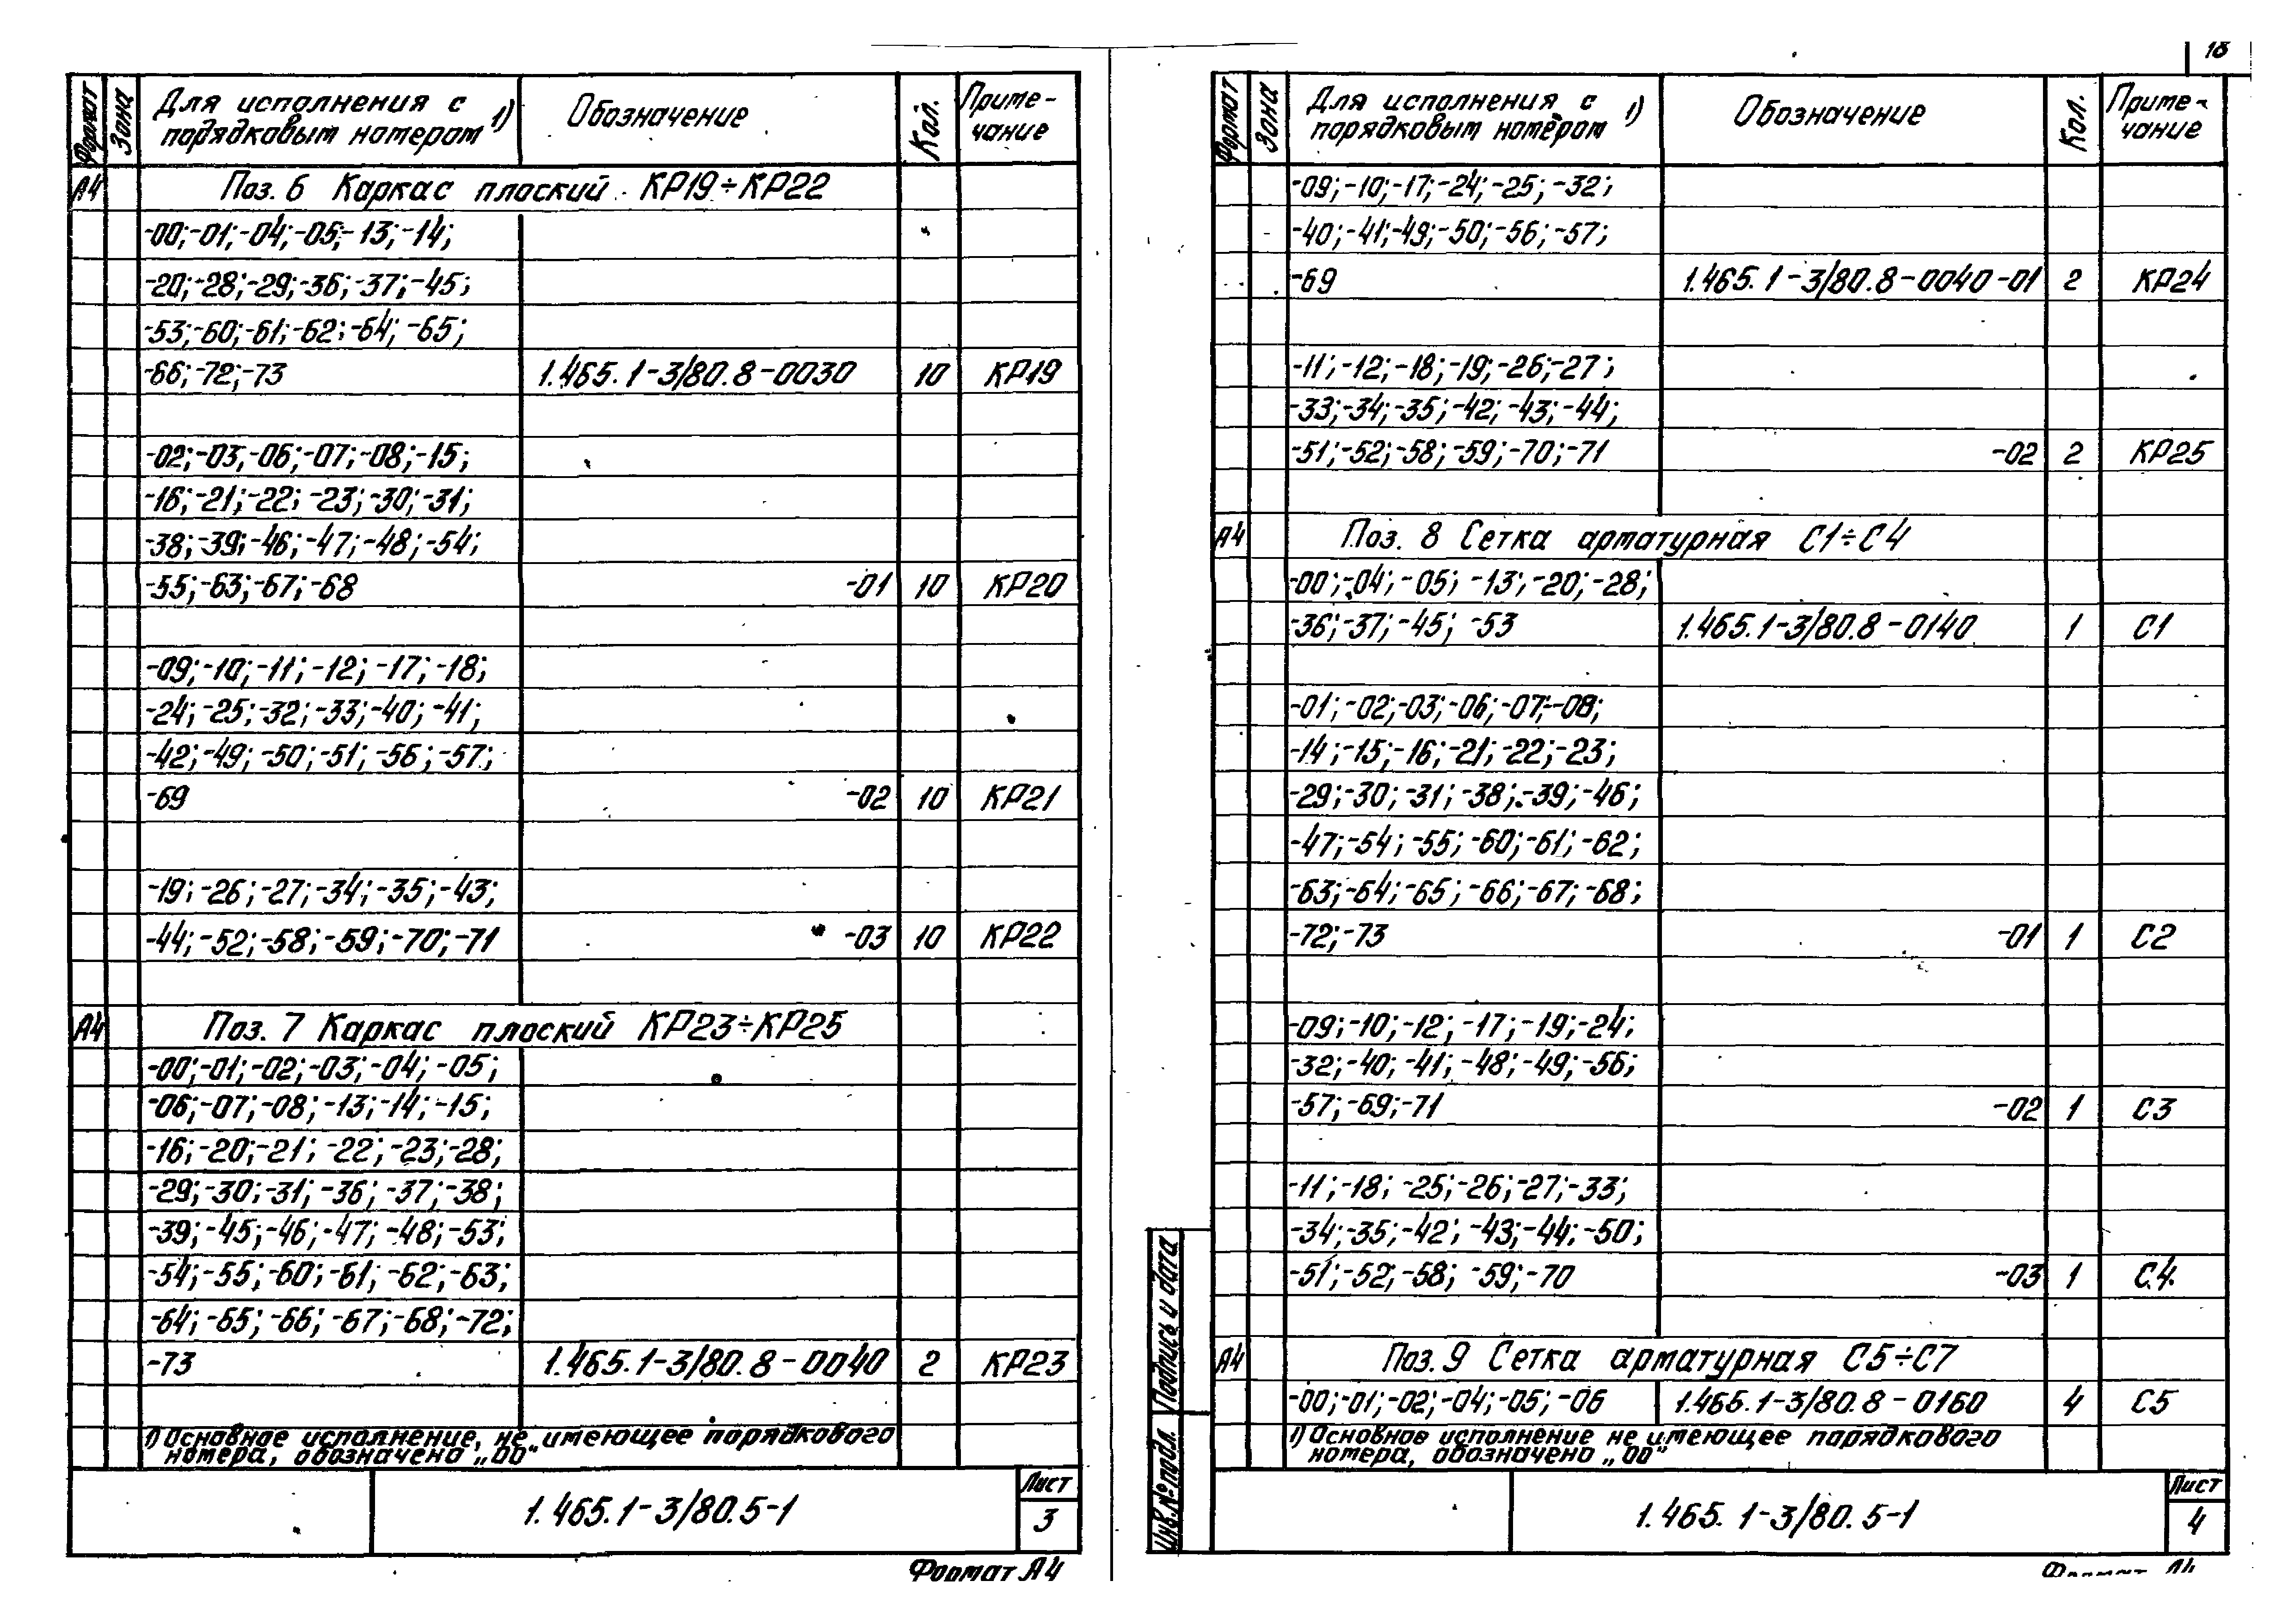 Формат Зона Для исполнения с порядковым номером 1) Обозначение Кол. Приме-чание
А4 Поз. 6 Каркас плоский КР19÷КР22
-00;-01;-04;-05;-13;-14;
-20;-28;-29;-36;-37;-45;
-53;-60;-61;-62;-64;-65;
-66;-72;-73 1.465.1-3/80.8-0030 10 КР19
-02;-03;-06;-07;-08;-15;
-16;-21;-22;-23;-30;-31;
-38;-39;-46;-47;-48;-54;
-55;-63;-67;-68 -01 10 КР20
-09;-10;-11;-12;-17;-18;
-24;-25;-32;-33;-40;-41;
-42;-49;-50;-51;-56;-57;
-69 -02 10 КР21
-19;-26;-27;-34;-35;-43;
-44;-52;-58;-59;-70;-71 -03 10 КР22
А4 Поз. 7 Каркас плоский КР23÷КР25
-00;-01;-02;-03;-04;-05;
-06;-07;-08;-13;-14;-15;
-16;-20;-21;-22;-23;-28;
-29;-30;-31;-36;-37;-38;
-39;-45;-46;-47;-48;-53;
-54;-55;-60;-61;-62;-63;
-64;-65;-66;-67;-68;-72;
-73 1.465.1-3/80.8-0040 2 КР23
1) Основное исполнение, не имеющее порядкового
номера, обозначено „00"
1.465.1-3/80.5-1 Лист 3
Формат А4
18
Формат Зона Для исполнения с порядковым номером 1) Обозначение Кол. Приме-чание
-09;-10;-17;-24;-25;-32;
-40;-41;-49;-50;-56;-57;
-69 1.465.1-3/80.8-0040-01 2 КР24
-11;-12;-18;-19;-26;-27;
-33;-34;-35;-42;-43;-44;
-51;-52;-58;-59;-70;-71 -02 2 КР25
А4 Поз. 8 Сетка арматурная С1÷С4
-00;-04;-05;-13;-20;-28;
-36;-37;-45;-53 1.465.1-3/80.8-0140 1 С1
-01;-02;-03;-06;-07;-08;
-14;-15;-16;-21;-22;-23;
-29;-30;-31;-38;-39;-46;
-47;-54;-55;-60;-61;-62;
-63;-64;-65;-66;-67;-68;
-72;-73 -01 1 С2
-09;-10;-12;-17;-19;-24;
-32;-40;-41;-48;-49;-56;
-57;-69;-71 -02 1 С3
-11;-18;-25;-26;-27;-33;
-34;-35;-42;-43;-44;-50;
-51;-52;-58;-59;-70 -03 1 С4
А4 Поз. 9 Сетка арматурная С5÷С7
-00;-01;-02;-04;-05;-06 1.465.1-3/80.8-0160 4 С5
1) Основное исполнение не имеющее порядкового
номера, обозначено „00"
Инв.№ подл. Подпись и дата
1.465.1-3/80.5-1 Лист 4
Формат А4